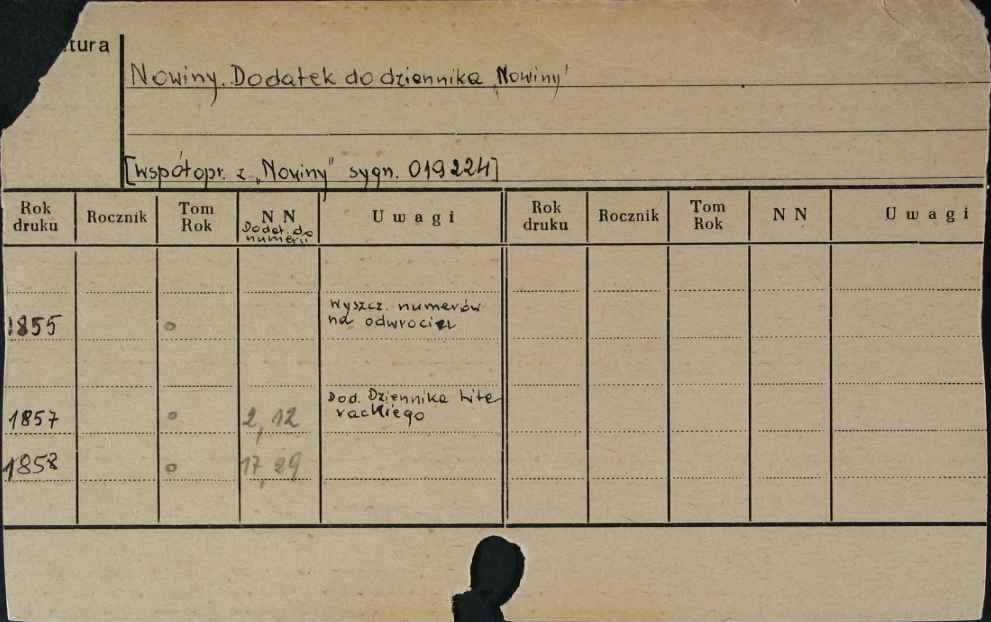 tura
Nowiny. Dodatek do dziennika „Nowiny"
[współopr. z „Nowiny" sygn. 019224]
Rok druku Rocznik Tom Rok N N Dodat. do numeru Uwagi Rok druku Rocznik Tom Rok N N Uwagi
1855 o Wyszcz. numerów
na odwrociu
1857 o 2, 12 Dod. Dziennika Lite
rackiego
1858 o 17, 29